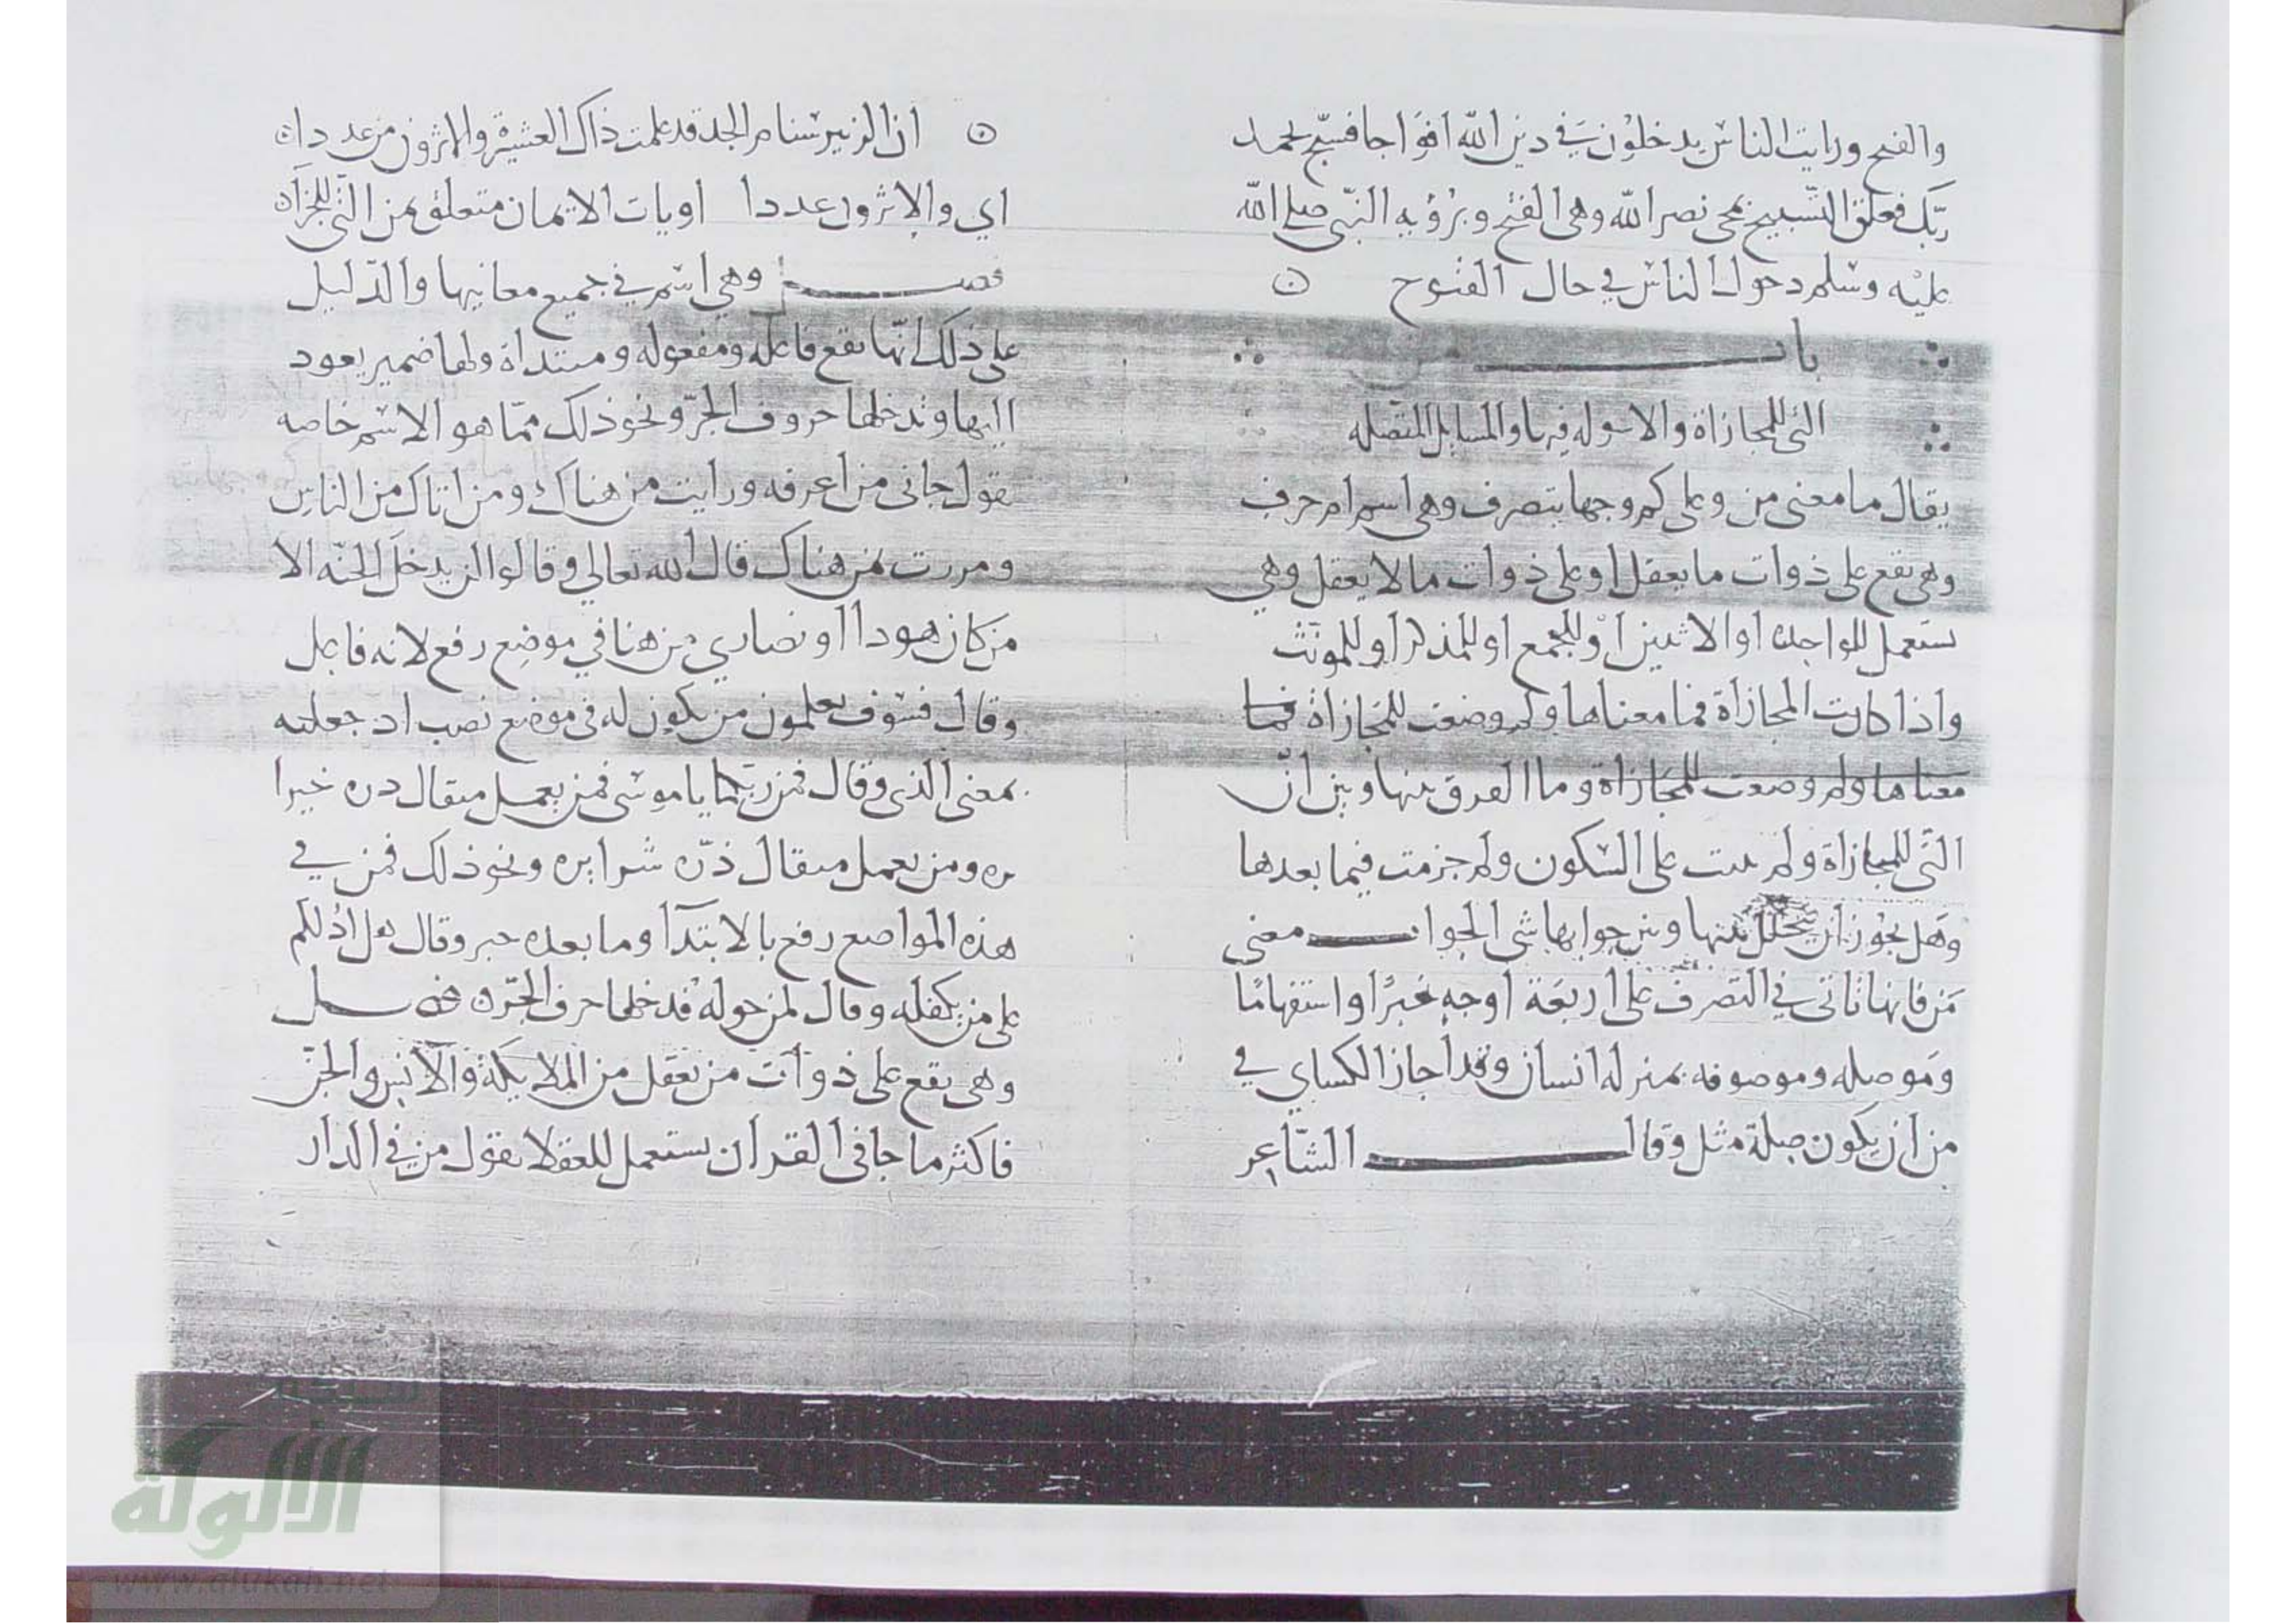 والفتح ورايت الناس يدخلون في دين الله افواجا فسبح بحمد
ربك فعلق التسبيح بمجى نصر الله وهى الفتح وبرؤيه النبي صلى الله
عليه وسلم دخول الناس في حال الفتوح ن
باب
التى للمجازاة والاسوله فيها والمسايل المتصله
يقال ما معنى من وعلى كم وجها يتصرف وهى اسم ام حرف
وهى تقع على ذوات ما يعقل او على ذوات ما لا يعقل وهي
تستعمل للواحد او الاثنين او للجمع او للمذكر او للمونث
واذا كانت المجازاة فما معناها ولم وضعت للمجازاة فما
معناها ولم وضعت للمجازاة وما الفرق بينها وبين ان
التى للمجازاة ولم بنيت على السكون ولم جزمت فيما بعدها
وهل يجوز ان يتخلل بينها وبين جوابها شى الجواب معنى
من فانها تاتى في التصرف على اربعة اوجه خبرا واستفهاما
وموصله وموصوفه بمنزله انسان وقد اجاز الكساي في
من ان يكون صلة مثل وقال الشاعر
ن ان الزبير سنام المجد قد علمت ذاك العشيرة والاثرون من عددا ن
اي والاثرون عددا او يات الايمان متعلق بمن التى للجزآ ن
فصل وهي اسم في جميع معانيها والدليل
على ذلك انها تقع فاعله ومفعوله ومبتداة ولها ضمير يعود
اليها وتدخلها حروف الجر ونحو ذلك مما هو الاسم خاصه
تقول جانى من اعرفه ورايت من هناك ومن اتاك من الناس
ومررت بمن هناك قال الله تعالى وقالوا لن يدخل الجنه الا
من كان هودا او نصاري من هنا في موضع رفع لانه فاعل
وقال فسوف تعلمون من يكون له في موضع نصب اذ جعلته
بمعنى الذى وقال فمن ربكما يا موسى فمن يعمل مثقال ذره خيرا
يره ومن يعمل مثقال ذره شرا يره ونحو ذلك فمن في
هذه المواضع رفع بالابتدآ وما بعده خبر وقال هل ادلكم
على من يكفله وقال لمن حوله فدخلها حرف الجر ن فصل
وهى تقع على ذوات من يعقل من الملايكة والانس والجن
فاكثر ما جا في القران يستعمل للعقلا تقول من في الدار
الألوكة
www.alukah.net